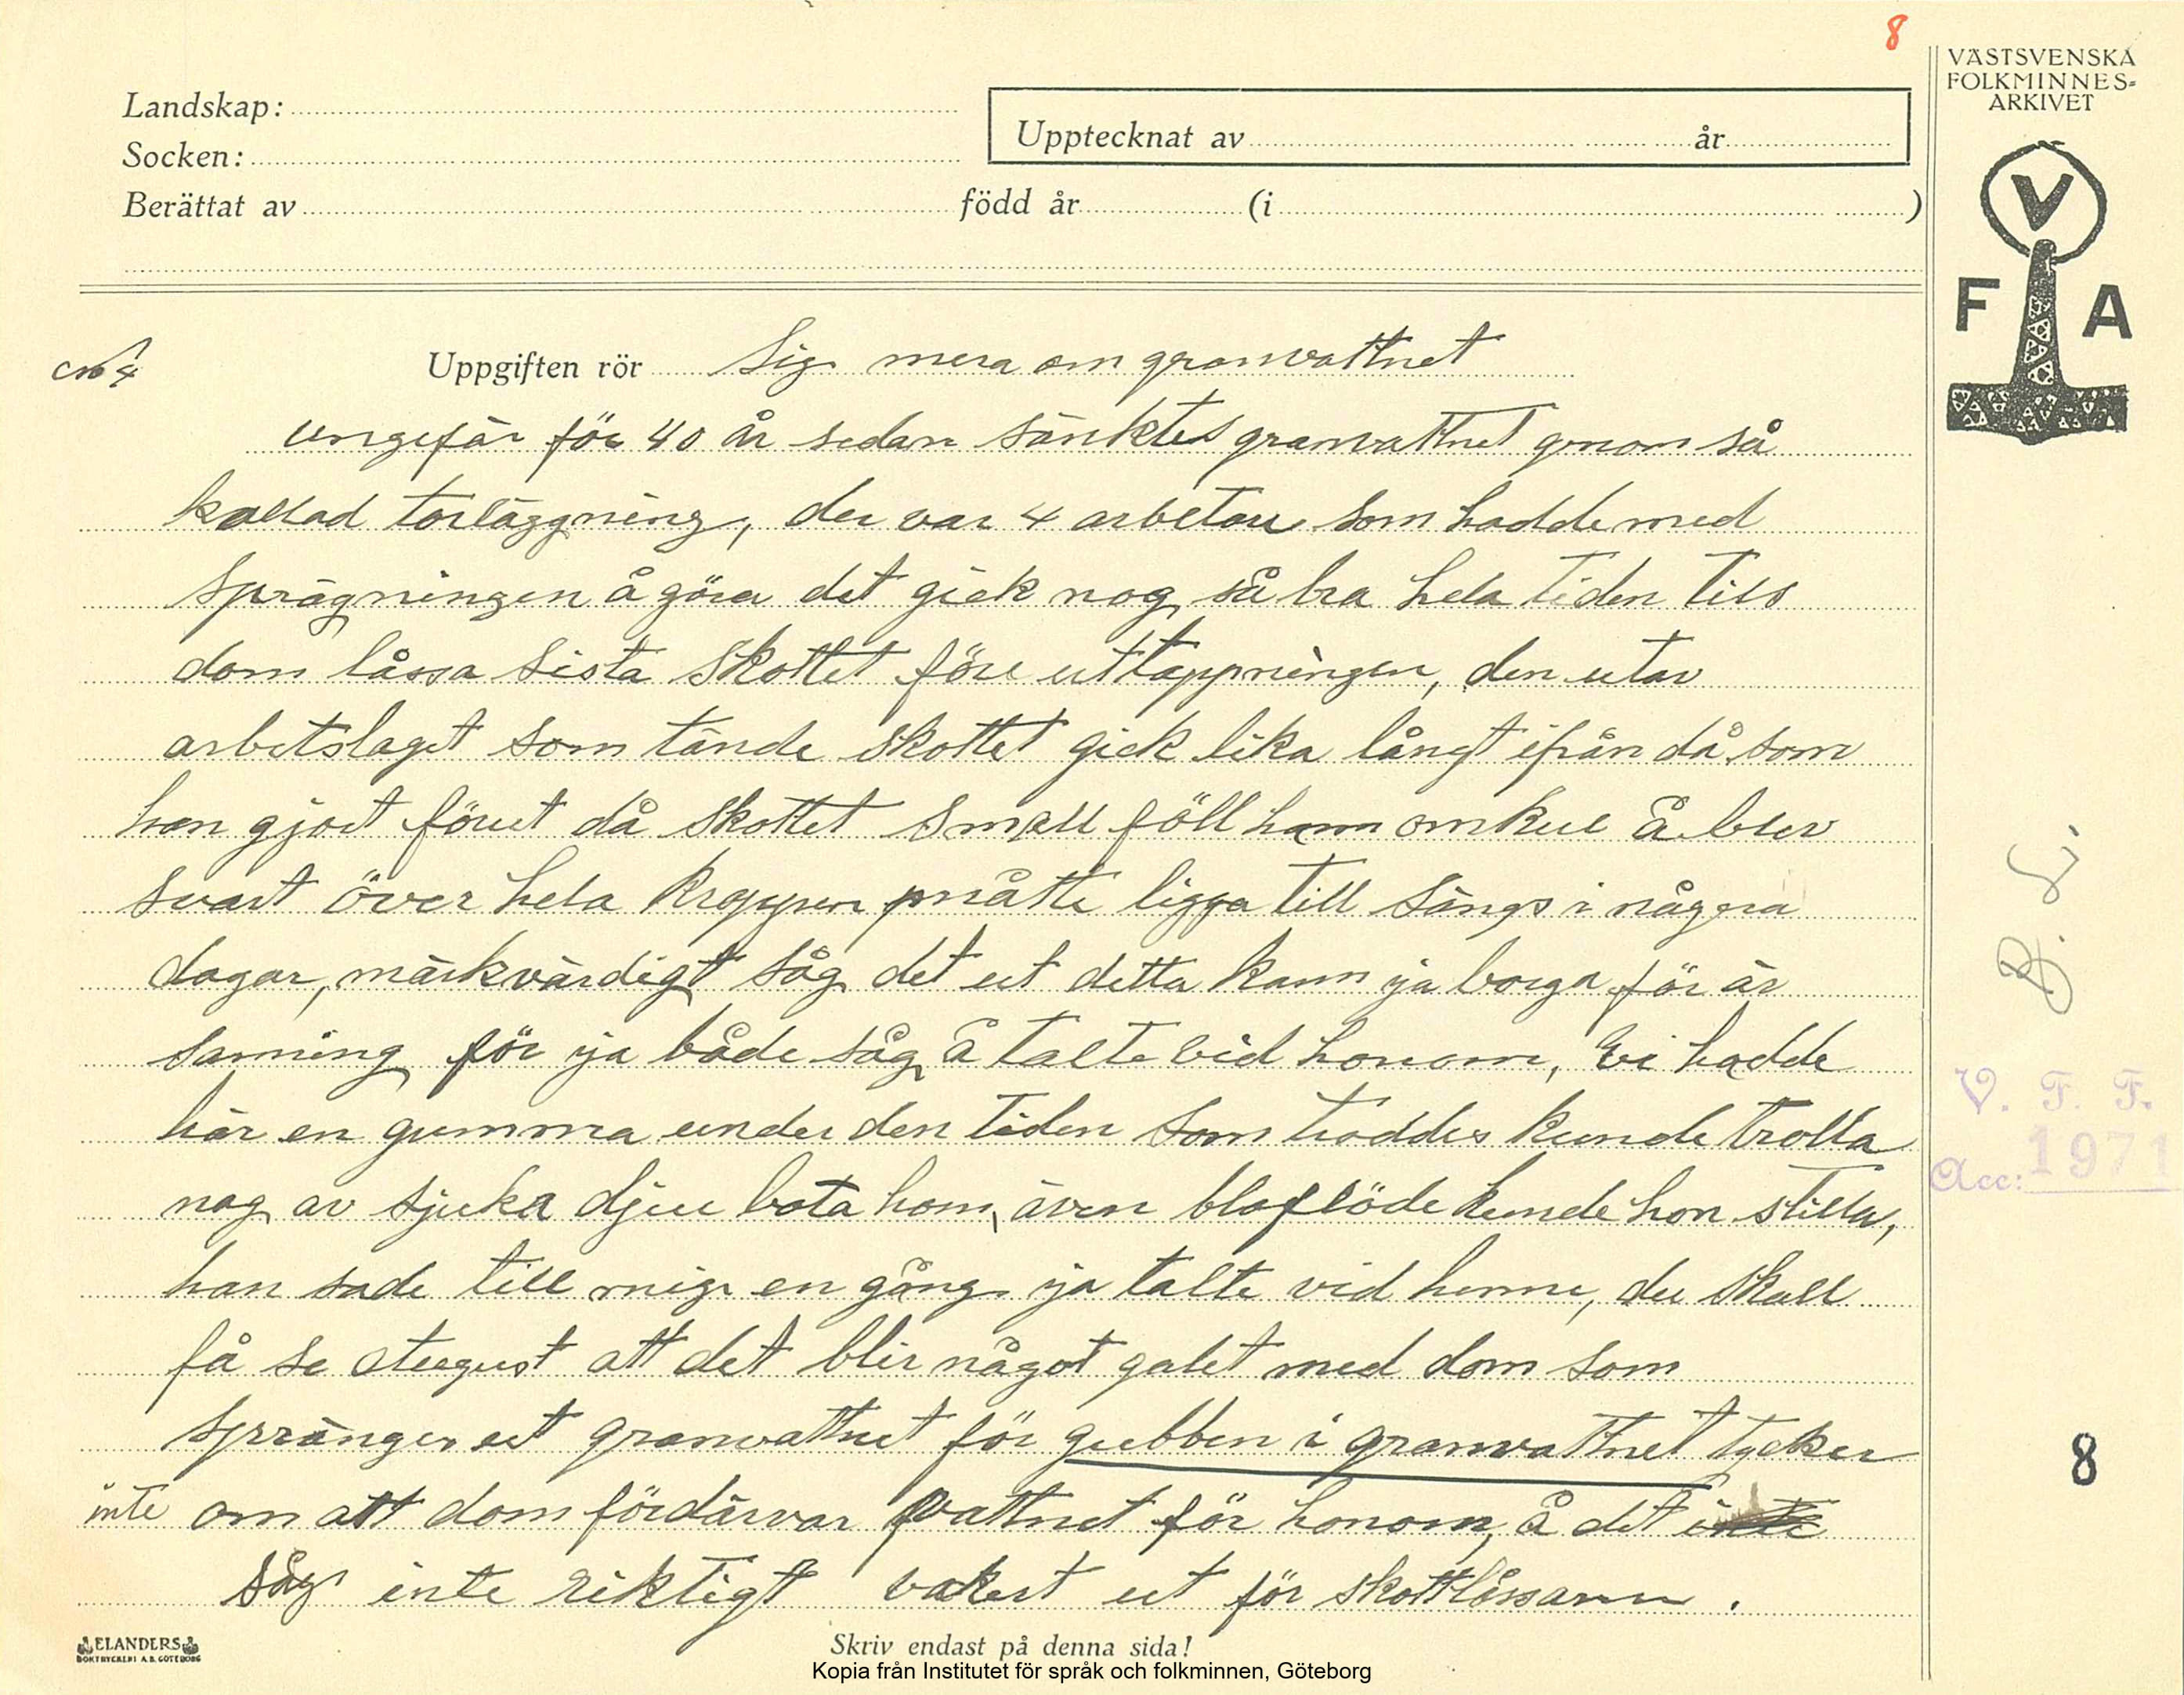 8
VÄSTSVENSKA
FOLKMINNES-
ARKIVET
V
F A
Landskap:
Socken:
Upptecknat av år
Berättat av född år (i )
No 4
Uppgiften rör Sig mera om granvattnet
ungefär för 40 år sedan sänktes granvattnet genom så
kallad torläggning, der var 4 arbetare som hadde med
sprägningen å göra det gick nog så bra hela tiden tils
dom låssa sista skottet före uttappningen, den utav
arbetslaget som tände skottet gick lika långt ifrån då som
han gjort föret då skottet small föll ham omkul å blev
svart över hela kroppen måtte ligga till sängs i någora
dagar, märkvärdigt såg det ut detta kann ja borga för är
sanning för ja både såg å talte vid honom, Vi hadde
här en gumma under den tiden som troddes kunde trolla
nog av sjuka djur bota hon, även bloflöde kunde hon stilla,
han sade till mig en gång ja talte vid henne, du skall
få se August att det blir något galet med dom som
spränger ut granvattnet för gubben i granvattnet tycker
inte om att dom fördärvar vattnet för honom, å det inte
såg inte riktigt vakert ut för skottlåssaren .
V. F. F.
Acc: 1971
8
ELANDERS
BOKTRYCKERI A.B. GÖTEBORG
Skriv endast på denna sida!
Kopia från Institutet för språk och folkminnen, Göteborg